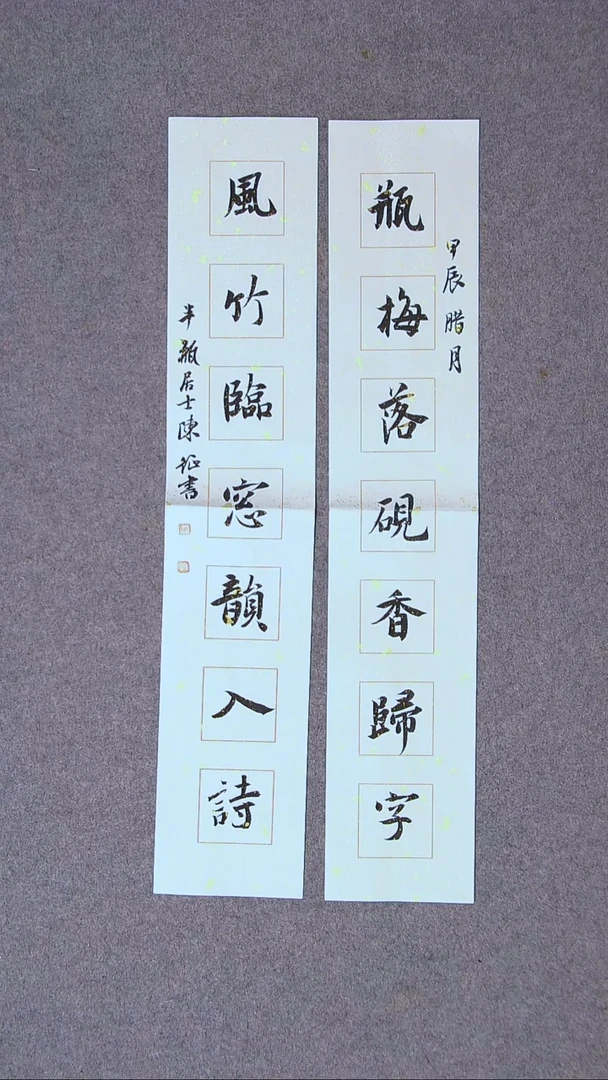 甲辰腊月
瓶梅落硯香歸字
風竹臨窓韻入詩
半瓶居士陳征書